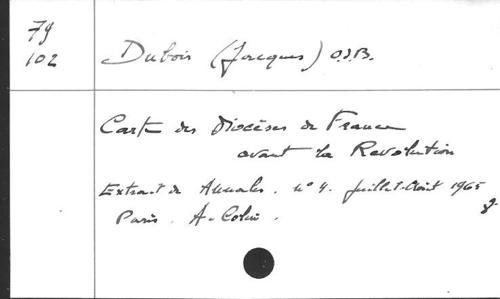 79
102
Dubois (Jacques) O.S.B.
Carte des Diocèses de France
avant la Révolution
Extrait de Annales. n° 4. Juillet-Août 1965
Paris. A. Colin. 8°